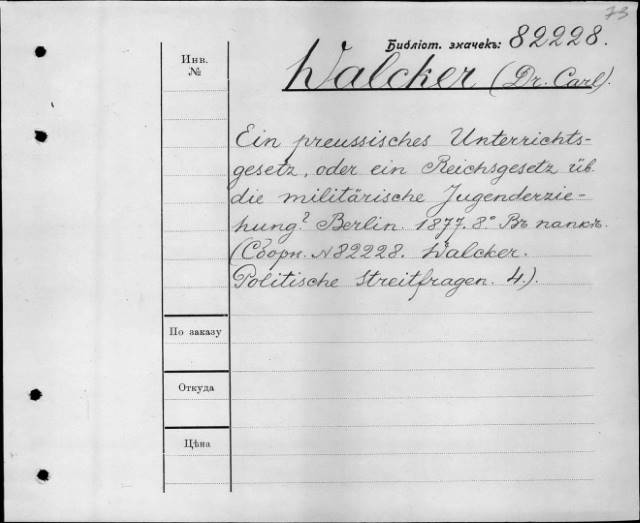 73
Библіот. значекъ: 82228.
Инв.
№
Walcker (Dr. Carl).
Ein preussisches Unterrichts-
gesetz, oder ein Reichsgesetz üb.
die militärische Jugenderzie-
hung? Berlin. 1877. 8° Въ папкѣ.
(Сборн. №82228. Walcker.
Politische Streitfragen. 4.).
По заказу
Откуда
Цѣна